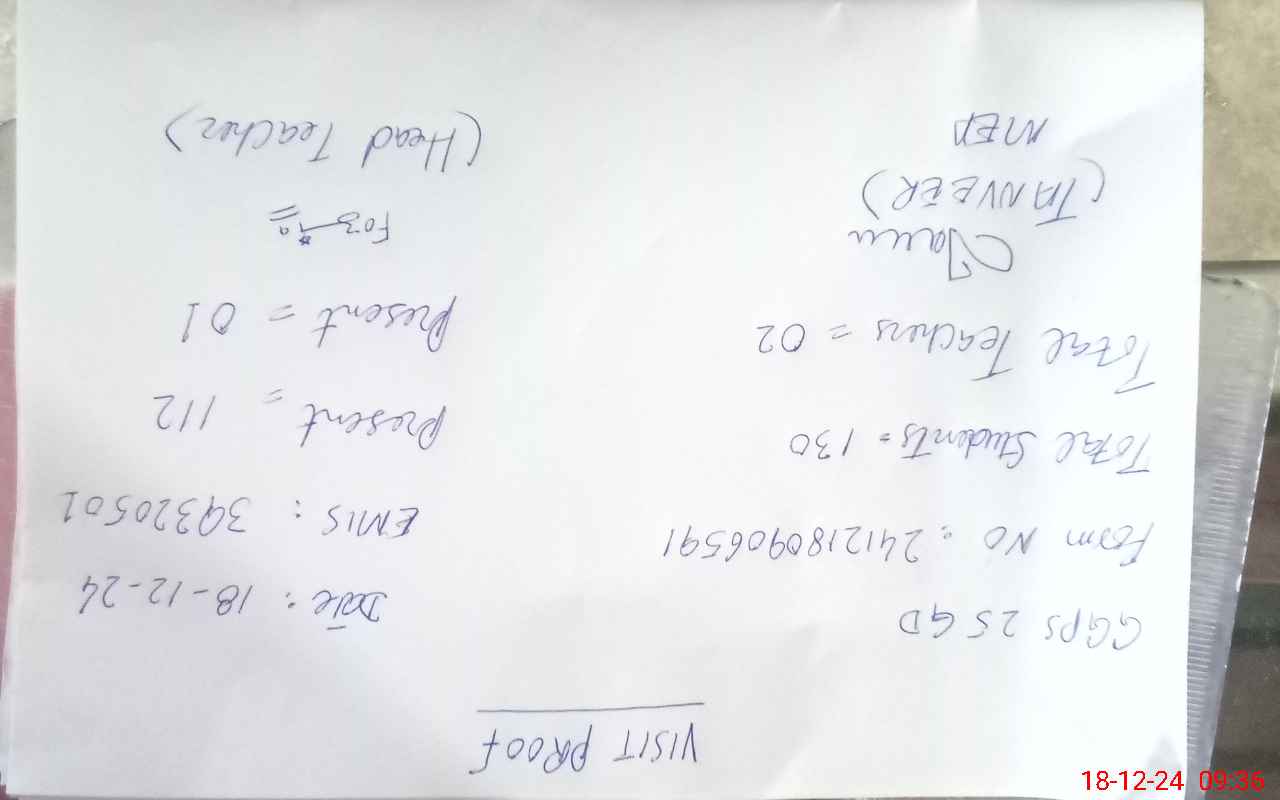 VISIT PROOF
GGPS 25 GD Date: 18-12-24
Form NO: 2412180906591 EMIS: 39320501
Total Students = 130 Present = 112
Total Teachers = 02 Present = 01
(TANVEER) (Head Teacher)
MEA
18-12-24 09:36